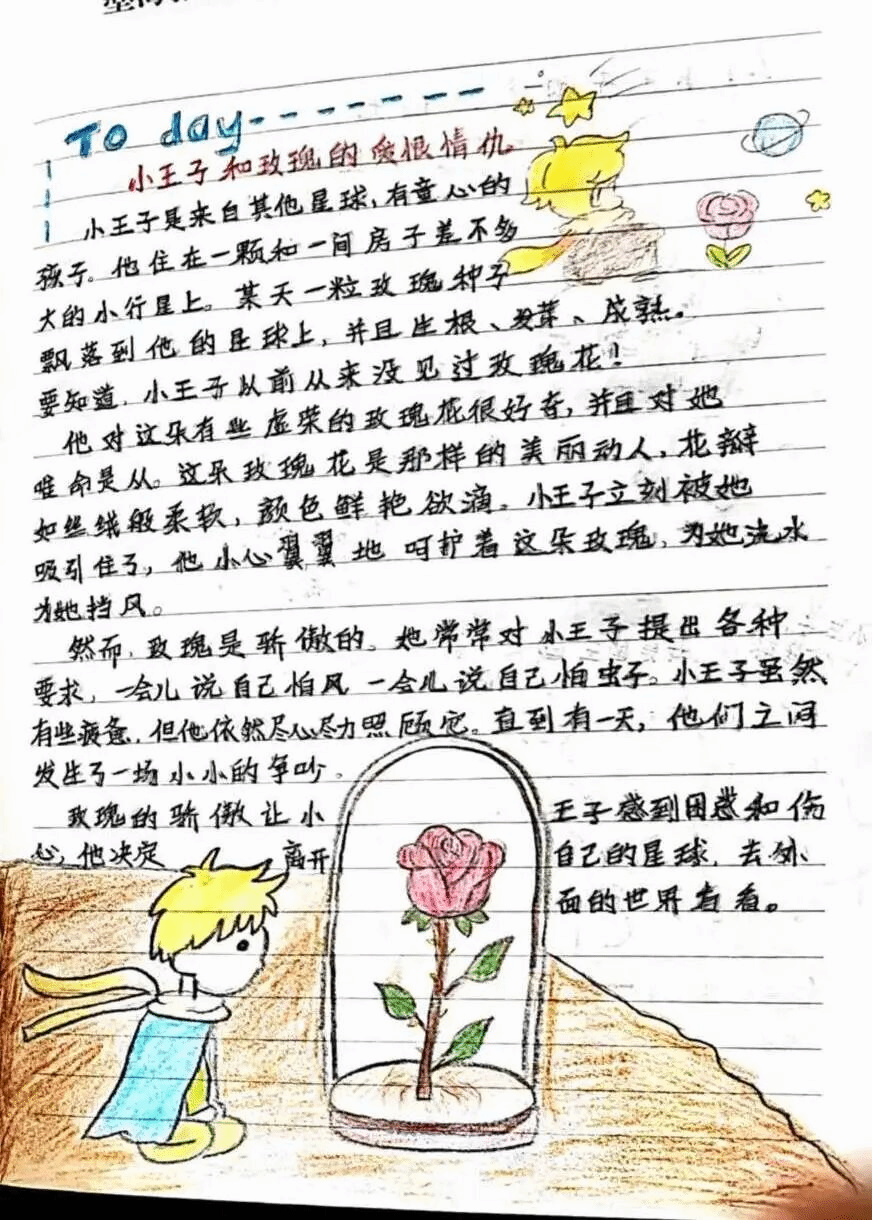 To day
小王子和玫瑰的爱恨情仇
小王子是来自其他星球,有童心的
孩子。他住在一颗和一间房子差不多
大的小行星上。某天一粒玫瑰种子
飘落到他的星球上,并且生根、发芽、成熟。
要知道,小王子以前从来没见过玫瑰花!
他对这朵有些虚荣的玫瑰花很好奇,并且对她
唯命是从。这朵玫瑰花是那样的美丽动人,花瓣
如丝绒般柔软,颜色鲜艳欲滴。小王子立刻被她
吸引住了,他小心翼翼地呵护着这朵玫瑰,为她浇水
为她挡风。
然而,玫瑰是骄傲的。她常常对小王子提出各种
要求,一会儿说自己怕风一会儿说自己怕虫子。小王子虽然
有些疲惫,但他依然尽心尽力照顾它。直到有一天,他们之间
发生了一场小小的争吵。
玫瑰的骄傲让小王子感到困惑和伤
心,他决定离开自己的星球,去外
面的世界看看。